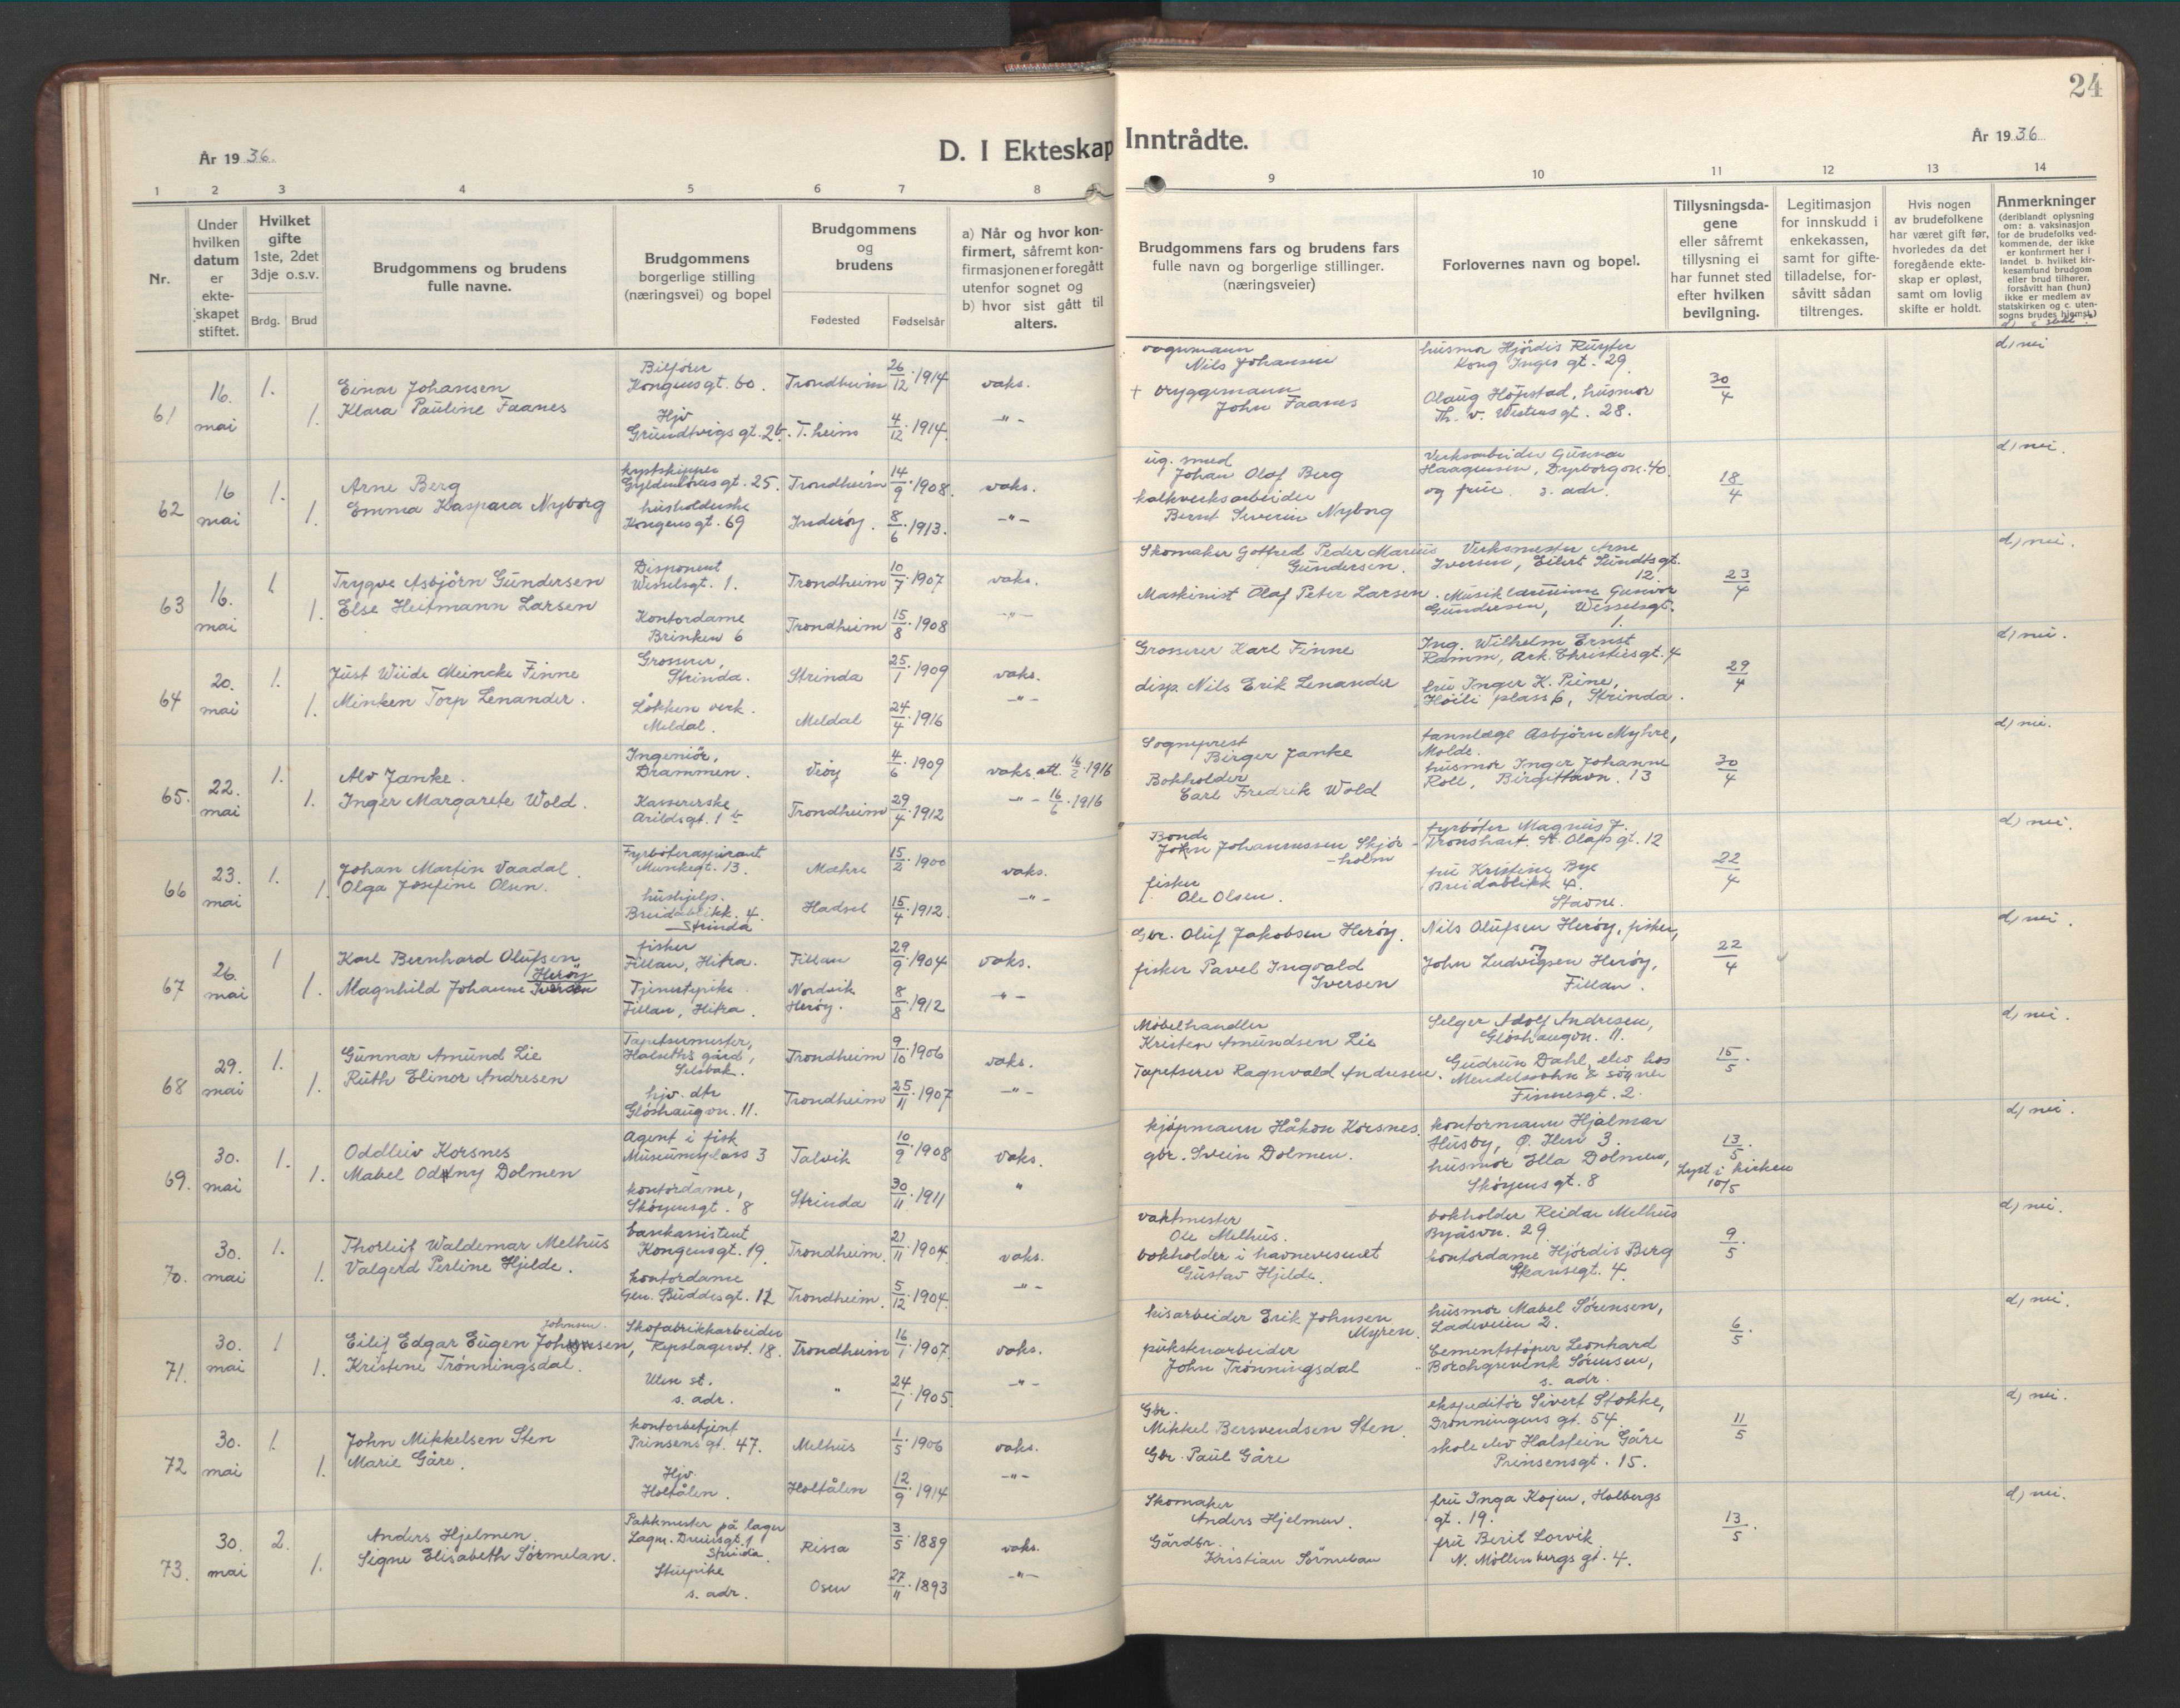 24
År 1936.
D. I Ekteskap Inntrådte.
År 1936
1 2 3 4 5 6 7 8 9 10 11 12 13 14
Nr.
Under hvilken datum er ekteskapet stiftet.
Hvilket gifte 1ste, 2det 3dje o.s.v.
Brdg. Brud
Brudgommens og brudens fulle navne.
Brudgommens borgerlige stilling (næringsvei) og bopel
Brudgommens og brudens
Fødested Fødselsår
a) Når og hvor konfirmert, såfremt konfirmasjonen er foregått utenfor sognet og
b) hvor sist gått til alters.
Brudgommens fars og brudens fars fulle navn og borgerlige stillinger. (næringsveier)
Forlovernes navn og bopel.
Tillysningsdagene eller såfremt tillysning ei har funnet sted efter hvilken bevilgning.
Legitimasjon for innskudd i enkekassen, samt for giftetilladelse, forsåvitt sådan tiltrenges.
Hvis nogen av brudefolkene har været gift før, hvorledes da det foregående ekteskap er opløst, samt om lovlig skifte er holdt.
Anmerkninger (deriblandt oplysning om: a. vaksinasjon for de brudefolks vedkommende, der ikke er konfirmert her i landet b. hvilket kirkesamfund brudgom eller brud tilhører, forsåvitt han (hun) ikke er medlem av statskirken og c. utensogns brudes hjemst.)
61 16. mai 1. 1.
Einar Johansen
Klara Pauline Faanes
Bilfører
Kongensgt. 60. Trondheim 26/12 1914 vaks.
Hjv
Grundtvigs gt. 2b. T.heim 4/12 1914. -"-
vognmann
Nils Johansen
+ bryggemann
John Faanes
husmor Hjördis Ruyter
Kong Inges gt. 29.
Olaug Höfstad, husmor
Th. v. Westens gt. 28.
30/4
d) nei
62 16 mai 1. 1.
Arne Berg
Emma Kaspara Nyborg
kystskipper
Gyldenløves gt. 25. Trondheim 14/9 1908. vaks.
husholderske
Kongensgt. 69 Inderøy. 8/6 1913. -"-
ug. smed
Johan Olaf Berg
kalkverksarbeider
Bernt Severin Nyborg
Verksarbeider Gunnar
Haagensen, Dyrborgvn. 40.
og frue s. adr.
18/4
d) nei.
63 16. mai 1. 1.
Trygve Asbjörn Gundersen
Else Heitmann Larsen
Disponent
Wesselsgt. 1. Trondheim 10/7 1907 vaks.
Kontordame
Brinken 6 Trondheim 15/8 1908 -"-
Skomaker Gotfred Peder Marius
Gundersen.
Maskinist Olaf Peter Larsen.
Verksmester Arne
Iversen, Eilert Sundtsgt.
12.
Musiklærerinne Gunvor
Gundersen, Wesselsgt.
1.
23/4
d) nei.
64 20. mai 1. 1.
Just Wiide Meincke Finne
Minken Torp Lenander.
Grosserer,
Strinda. Strinda 25/1 1909 vaks.
Løkken verk.
Meldal. Meldal 24/4 1916 -"-
Grosserer Karl Finne
disp. Nils Erik Lenander
Ing. Wilhelm Ernst
Ramm, Ark. Christiesgt. 4
fru Inger K. Piene,
Høili plass 6, Strinda.
29/4
d) nei.
65. 22. mai 1. 1.
Alv Janke.
Inger Margarete Wold.
Ingeniör,
Drammen. Veöy 4/6 1909 vaks. att. 16/2 1916
Kassererske
Arildsgt. 1 b Trondheim 29/4 1912 -"- 16/6 1916
Sogneprest
Birger Janke
Bokholder
Carl Fredrik Wold
tannlæge Asbjørn Myhre,
Molde.
husmor Inger Johanne
Roll, Birgittavn. 13
30/4
d) nei.
66 23. mai 1. 1.
Johan Martin Vaadal.
Olga Josefine Olsen.
Fyrböteraspirant
Munkegt. 13. Mæhre 15/2 1900 vaks.
hushjelp.
Breidablikk. 4.
Strinda Hadsel 15/4 1912. -"-
Bonde
John Johannessen Skjör-
holm
fisker
Ole Olsen.
fyrböter Magnus J.
Tronshart. St. Olafs gt. 12
fru Kristine Bye
Breidablikk 4.
Stavne.
22/4
d) nei.
67 26. mai 1 1.
Karl Bernhard Olufsen
Herøy
Magnhild Johanne Iversen
fisker
Fillan, Hitra. Fillan 29/9 1904 vaks.
Tjenestepike.
Fillan, Hitra. Nordvik
Herøy. 8/8 1912 -"-
Gbr. Oluf Jakobsen Herøy.
fisker Pavel Ingvald
Iversen
Nils Olufsen Herøy, fisker,
og
John Ludvigsen Herøy,
Fillan.
22/4
d) nei.
68 29. mai 1. 1.
Gunnar Amund Lie
Ruth Elinor Andresen
Tapetsermester,
Halseths gård,
Selsbak. Trondheim 9/10 1906 vaks.
hjv. dtr
Glöshaugvn. 11. Trondheim 25/11 1907 -"-
Møbelhandler
Kristen Amundsen Lie
Tapetserer Ragnvald Andresen.
Selger Adolf Andresen,
Glöshaugvn. 11.
Gudrun Dahl, elev hos
Mendelssohn & sögner
Finnesgt. 2.
15/5.
d) nei.
69. 30. mai 1. 1.
Oddleiv Korsnes
Mabel Oddny Dolmen
Agent i fisk
Museumsplass 3 Talvik 10/9 1908 vaks.
kontordame,
Sköyensgt. 8 Strinda 30/11 1911 "
kjøpmann Håkon Korsnes.
gbr. Svein Dolmen.
kontormann Hjalmar
Husby, Ø. Ilen 3.
husmor Ella Dolmen,
Skóyens gt. 8
13/5.
Lyst i kirken
10/5
d) nei.
70. 30. mai 1. 1.
Thorleif Waldemar Melhus
Valgerd Perline Hjelde.
bankassistent
Kongensgt. 19. Trondheim. 21/11 1904 vaks.
kontordame
Gen. Buddesgt. 12 Trondheim. 5/12 1904. -"-
vaktmester
Ole Melhus.
bokholder i havnevesenet
Gustav Hjelde.
bokholder Reidar Melhus
Byåsvn. 29.
kontordame Hjördis Berg
Skansegt. 4.
9/5.
d) nei.
71. 30. mai 1 1.
Johnsen.
Eilif Edgar Eugen Johnsen,
Kristine Trønningsdal.
Skofabrikkarbeider
Repslagervt. 18. Trondheim 16/1 1907. vaks.
Uten st.
s. adr. " 24/1 1905. -"-
kisarbeider Erik Johnsen
Myren.
pukstenarbeider
John Trønningsdal
husmor Mabel Sørensen,
Ladeveien 2.
Cementstøper Leonhard
Borchgrevink Sørensen,
s. adr.
6/5.
d) nei.
72 30. mai 1. 1.
John Mikkelsen Sten
Marie Gåre.
kontorbetjent
Prinsens gt. 47. Melhus 1/5 1906 vaks.
Hjv.
Holtålen. Holtålen 12/9 1914 -"-
Gbr.
Mikkel Bersvendsen Sten.
Gbr. Paul Gåre
ekspeditör Sivert Stokke,
Dronningens gt. 54.
skoleelev Halstein Gåre
Prinsensgt. 15.
11/5
d) nei.
73. 30. mai 2. 1.
Anders Hjelmen.
Signe Elisabeth Sørmelan.
Pakkmester på lager
Lagm. Dreiersgt. 1
Strinda. Rissa 3/5 1889 vaks.
Stuepike
s. adr. Osen 27/11 1893 -"-
Skomaker
Anders Hjelmen.
Gårdbr.
Kristian Sörmelan
fru Inga Kojen, Holbergs
gt. 19.
fru Berit Lorvik
N. Möllenbergs gt. 4.
13/5.
d) nei.